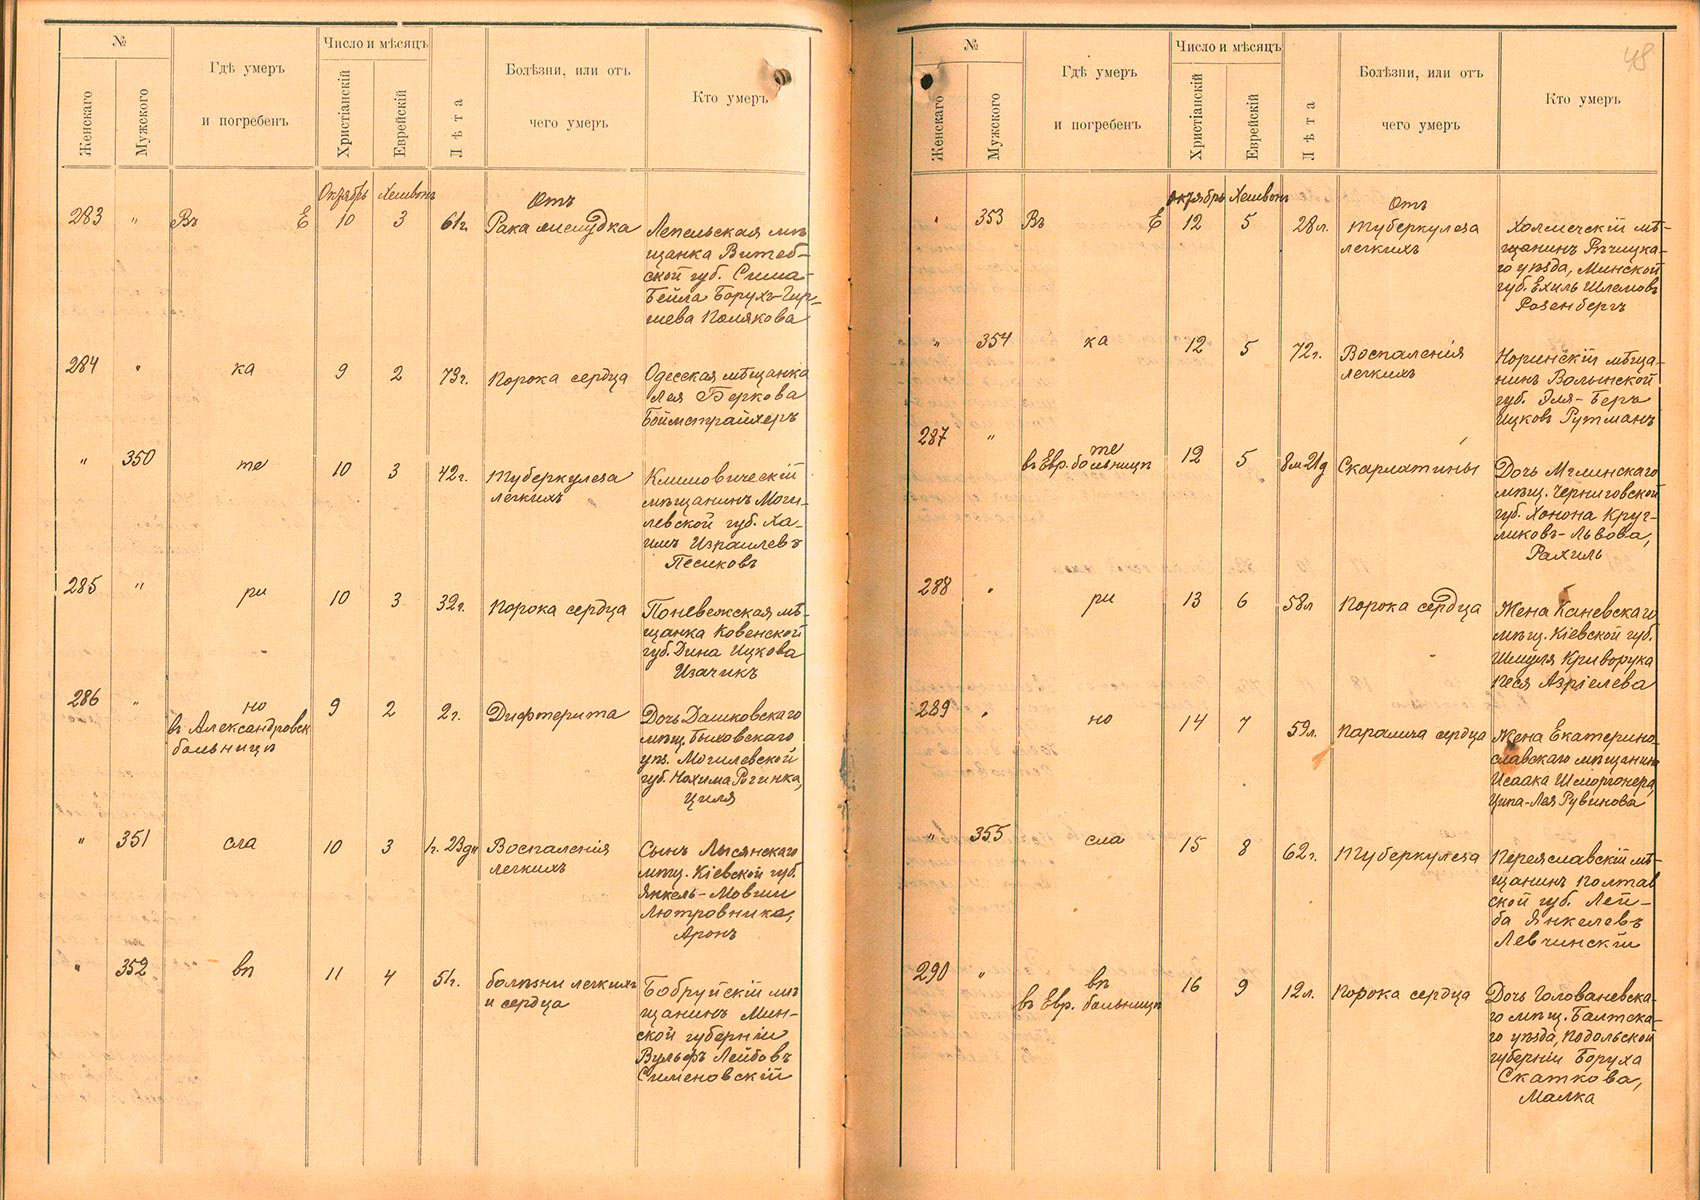 №
Число и мѣсяцъ
Женскаго
Мужского
Гдѣ умеръ
и погребенъ
Христіанскій
Еврейскій
Лѣта
Болѣзни, или отъ
чего умеръ
Кто умеръ
Октябрь Хешвонъ
Отъ
283 " Въ Е 10 3 61г. Рака желудка
Лепельская мѣ-
щанка Витеб-
ской губ. Сима-
Бейла Борухъ-Гир-
шева Полякова
284 " ка 9 2 73г. Порока сердца
Одесская мѣщанка
Лея Беркова
Боймстрайхеръ
" 350 те 10 3 42г. Туберкулеза
легкихъ
Климовическій
мѣщанинъ Моги-
левской губ. Ха-
имъ Израилевъ
Песиковъ
285 " ри 10 3 32г. Порока сердца
Поневежская мѣ-
щанка Ковенской
губ. Дина Ицкова
Изачикъ
286 " но 9 2 2г. Дифтерита
въ Александровск
больницѣ
Дочь Дашковскаго
мѣщ. Быховскаго
уѣз. Могилевской
губ. Нохима Рогинка,
Циля
" 351 сла 10 3 1г. 23дн Воспаленія
легкихъ
Сынъ Лысянскаго
мѣщ. Кіевской губ.
Янкель-Мовши
Лютровника,
Аронъ
" 352 вп 11 4 51г. болѣзни легкихъ
и сердца
Бобруйскій мѣ
щанинъ Мин-
ской губерніи
Вульфъ Лейбовъ
Сименовскій
48
№
Число и мѣсяцъ
Женскаго
Мужского
Гдѣ умеръ
и погребенъ
Христіанскій
Еврейскій
Лѣта
Болѣзни, или отъ
чего умеръ
Кто умеръ
Октябрь Хешвонъ
Отъ
" 353 Въ Е 12 5 28л. Туберкулеза
легкихъ
Холмечскій мѣ-
щанинъ Рѣчицка-
го уѣзда, Минской
губ. Ехиль Шлемовъ
Розенбергъ
" 354 ка 12 5 72г. Воспаленія
легкихъ
Норинскій мѣща-
нинъ Волынской
губ. Эля-Беръ
Ицковъ Гутманъ
287 " те
въ Евр. больницѣ 12 5 8м 21д Скарлатины
Дочь Мглинскаго
мѣщ. Черниговской
губ. Хонона Круг-
ликовъ-Львова,
Рахиль
288 " ри 13 6 58л Порока сердца
Жена Каневскаго
мѣщ. Кіевской губ.
Шмуля Криворука
Песя Азріелева
289 " но 14 7 59л. Паралича сердца
Жена Екатерино-
славскаго мѣщанина
Исаака Шморгонера,
Ципа-Лея Рувинова
" 355 сла 15 8 62г. Туберкулеза
Переяславскій мѣ-
щанинъ Полтав
ской губ. Лей-
ба Янкелевъ
Левчинскій
290 " вп
въ Евр. больницѣ 16 9 12л. Порока сердца
Дочь Голованевска-
го мѣщ. Балтска-
го уѣзда, Подольской
губерніи Боруха
Скаткова,
Малка